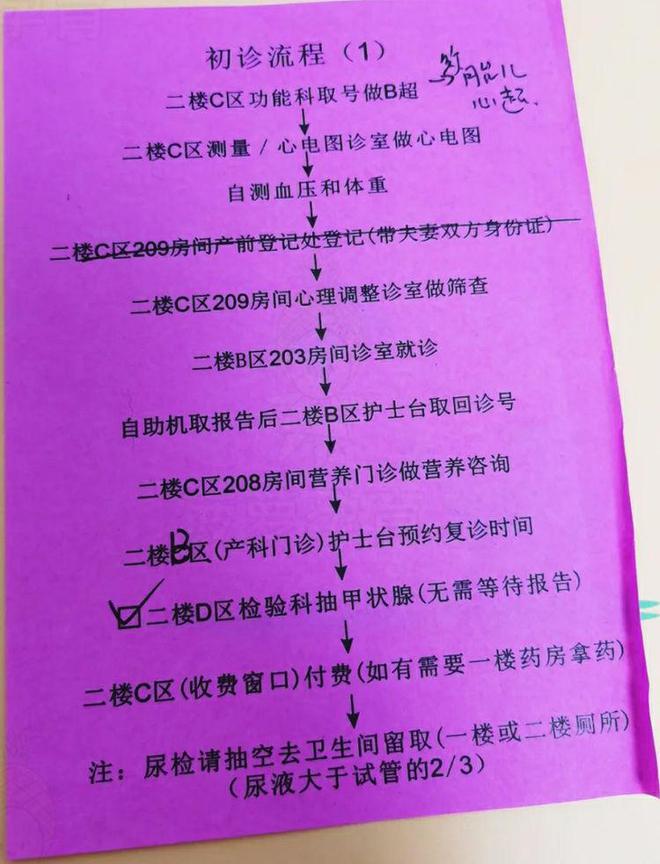 初诊流程（1）
二楼C区功能科取号做B超
胎儿
心超
二楼C区测量 / 心电图诊室做心电图
自测血压和体重
二楼C区209房间产前登记处登记(带夫妻双方身份证)
二楼C区209房间心理调整诊室做筛查
二楼B区203房间诊室就诊
自助机取报告后二楼B区护士台取回诊号
二楼C区208房间营养门诊做营养咨询
二楼B区(产科门诊)护士台预约复诊时间
☑二楼D区检验科抽甲状腺(无需等待报告)
二楼C区(收费窗口)付费(如有需要一楼药房拿药)
注：尿检请抽空去卫生间留取(一楼或二楼厕所)
（尿液大于试管的2/3）